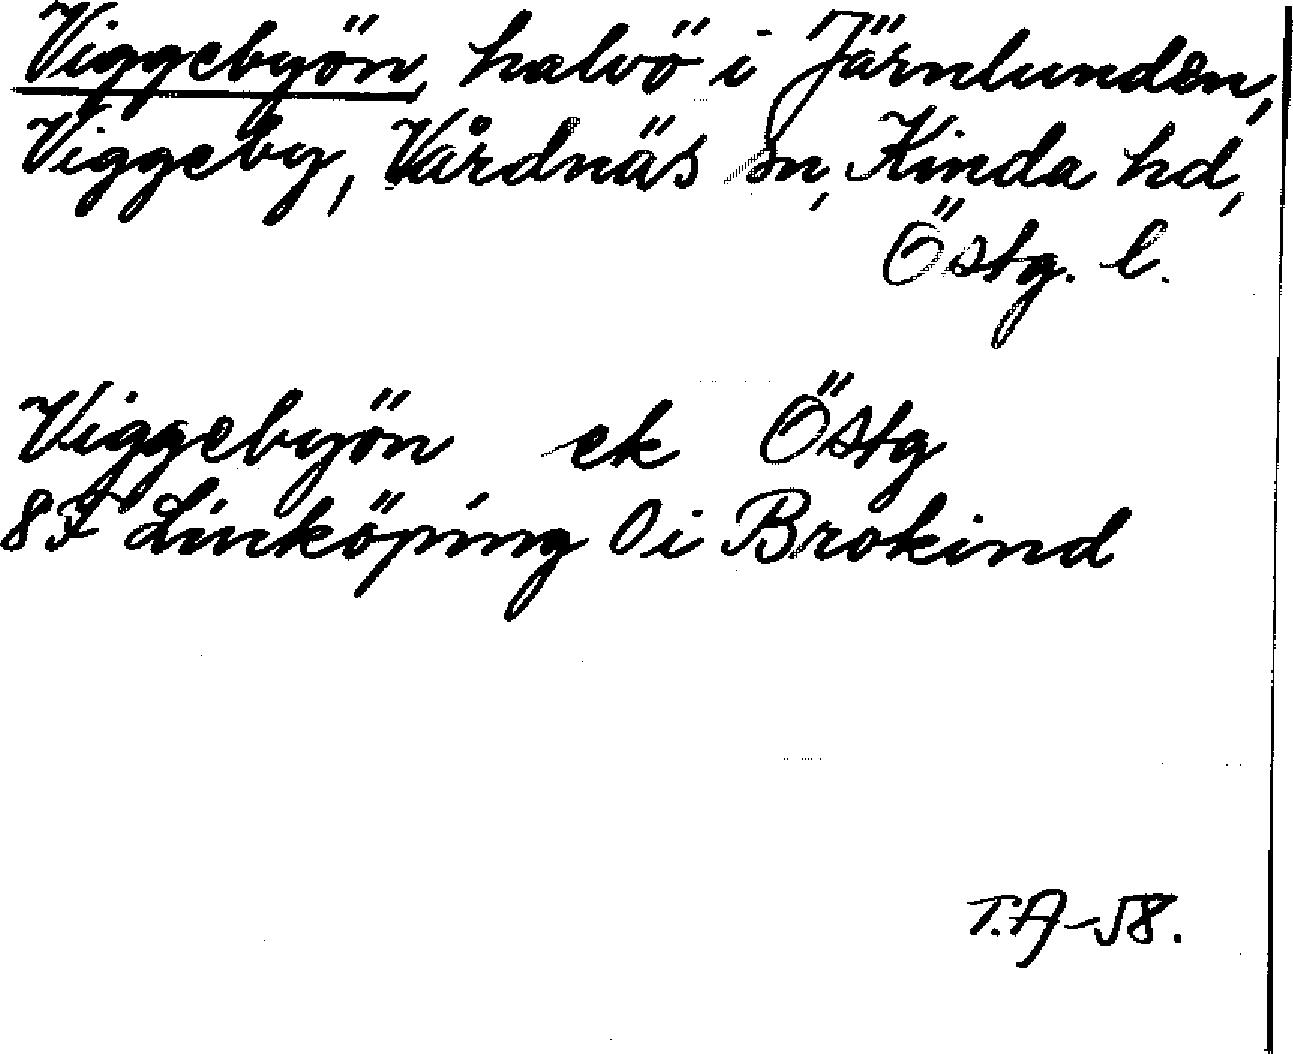 Viggebyön, halvö i Järnlunden,
Viggeby, Vårdnäs sn, Kinda hd,
Östg. l.
Viggebyön ek Östg
8F Linköping 0 i Brokind
T.A-58.